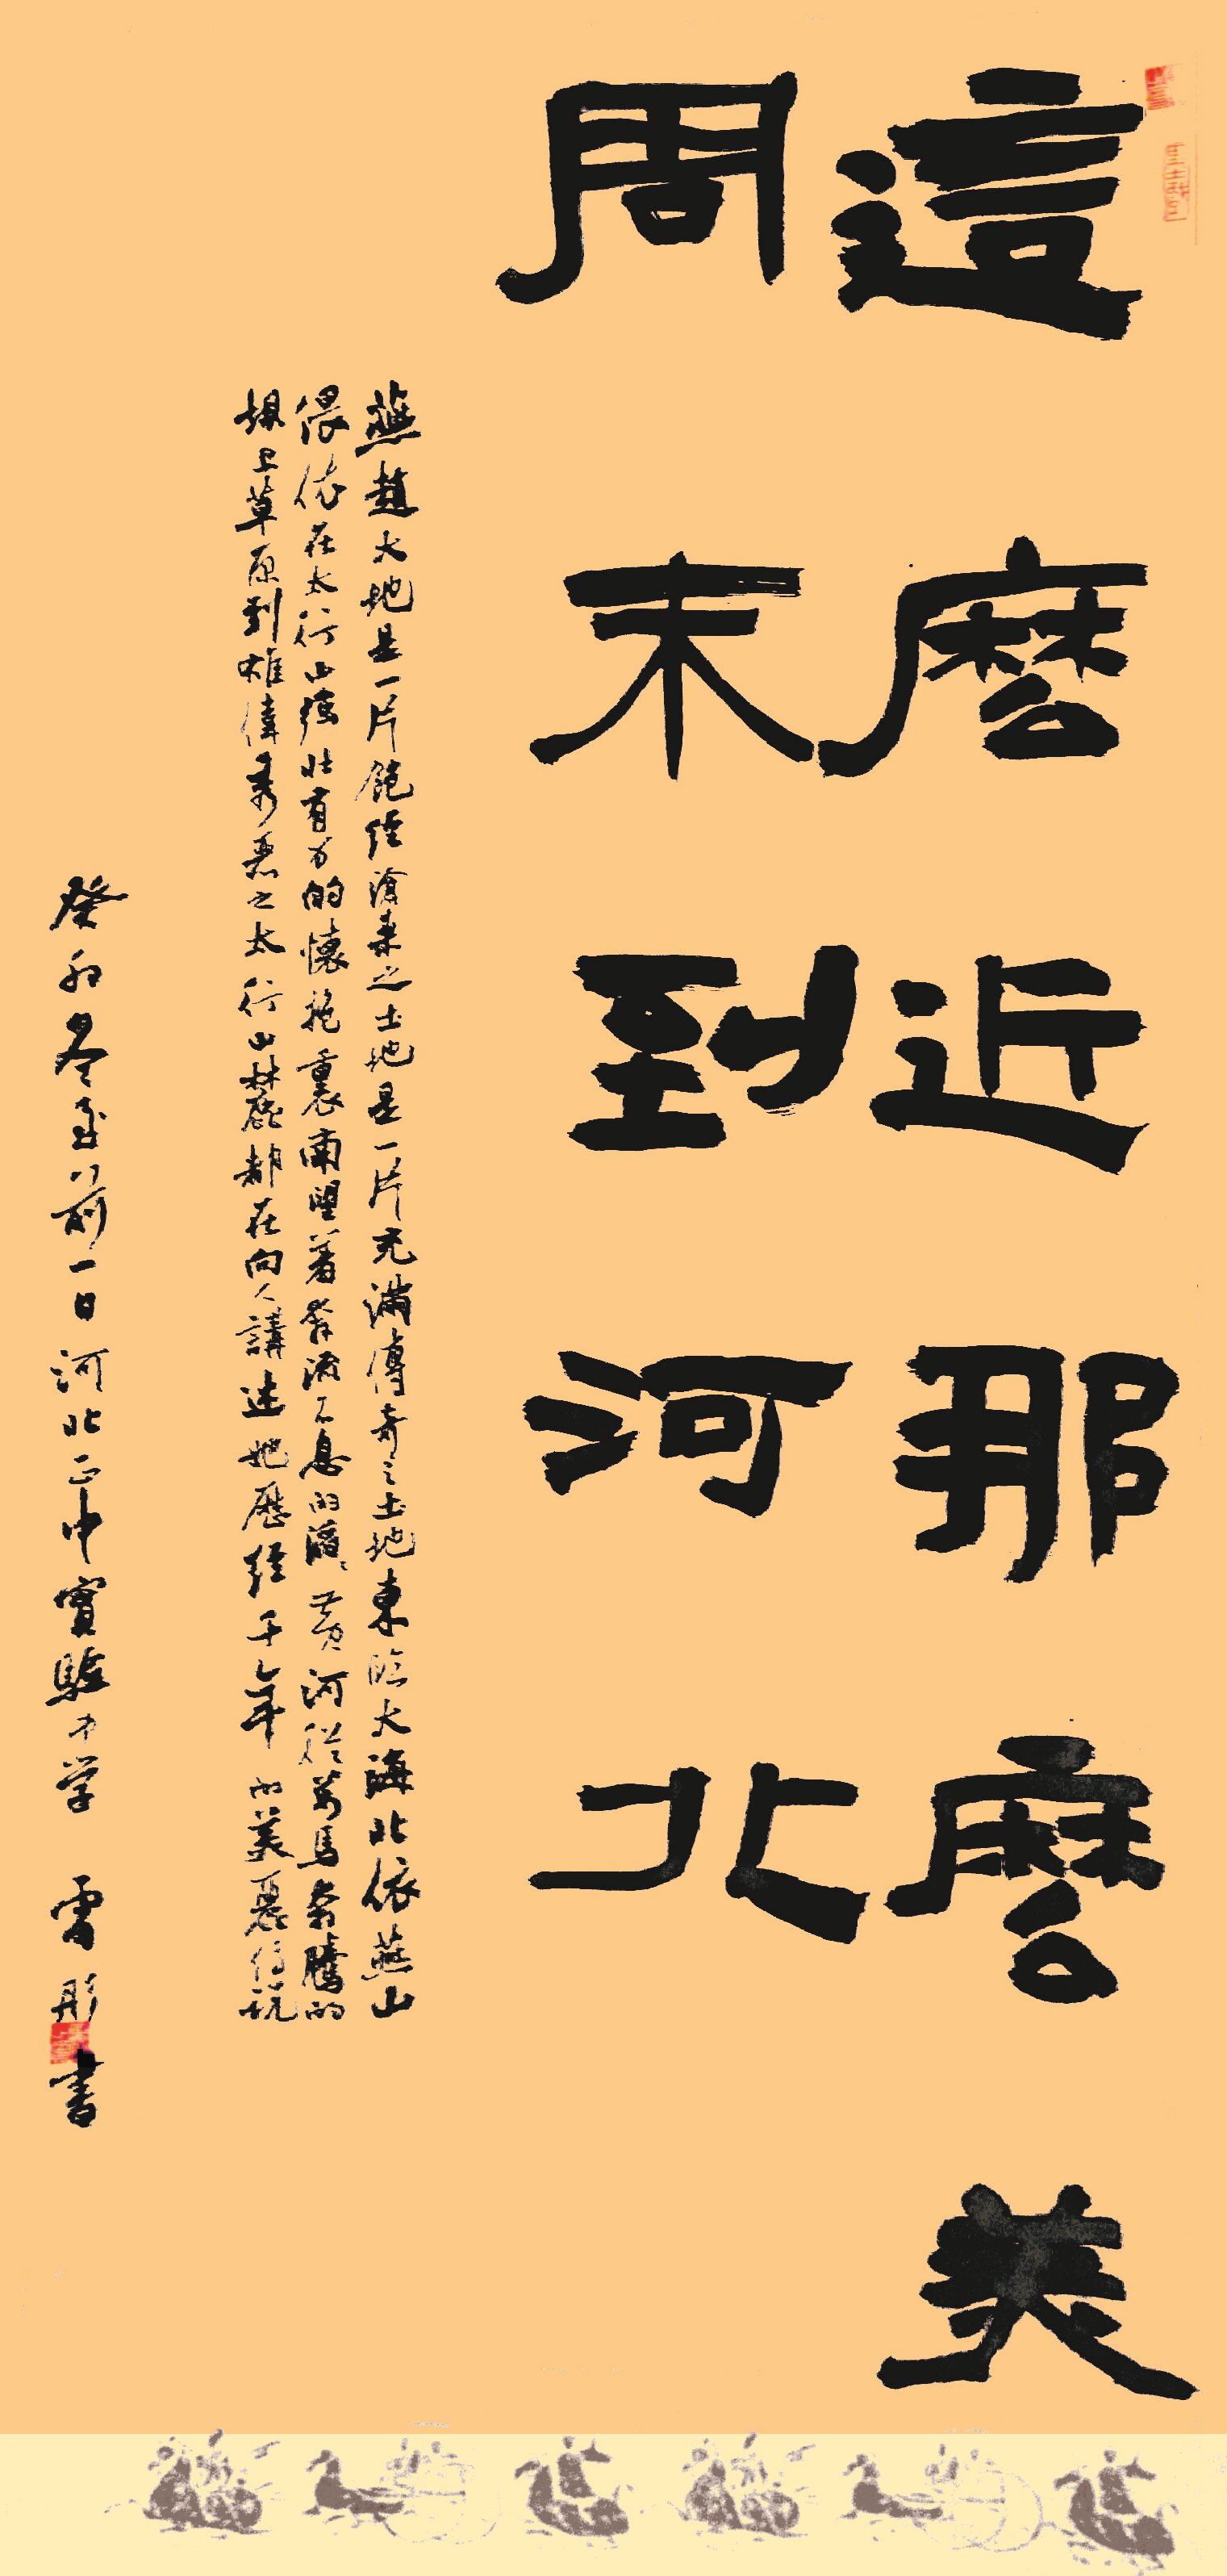 這麼近那麼美
周末到河北
燕趙大地是一片飽經滄桑之土地是一片充滿傳奇之土地東臨大海北依燕山
偎依在太行山強壯有力的懷抱裏南望着奔流不息的滔滔黃河從萬馬奔騰的
壩上草原到雄偉秀麗之太行山麓都在向人講述她歷經千年的美麗傳說
癸卯冬至前一日河北正中實驗中学 雷彤書